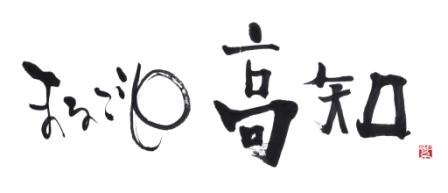 まるごと高知